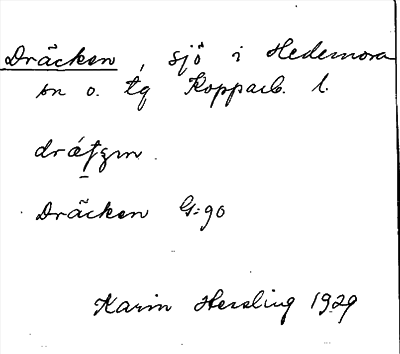 Dräcken, sjö i Hedemora
sn o. tg Kopparb. l.
Dräcken G:90
Karin Hessling 1929